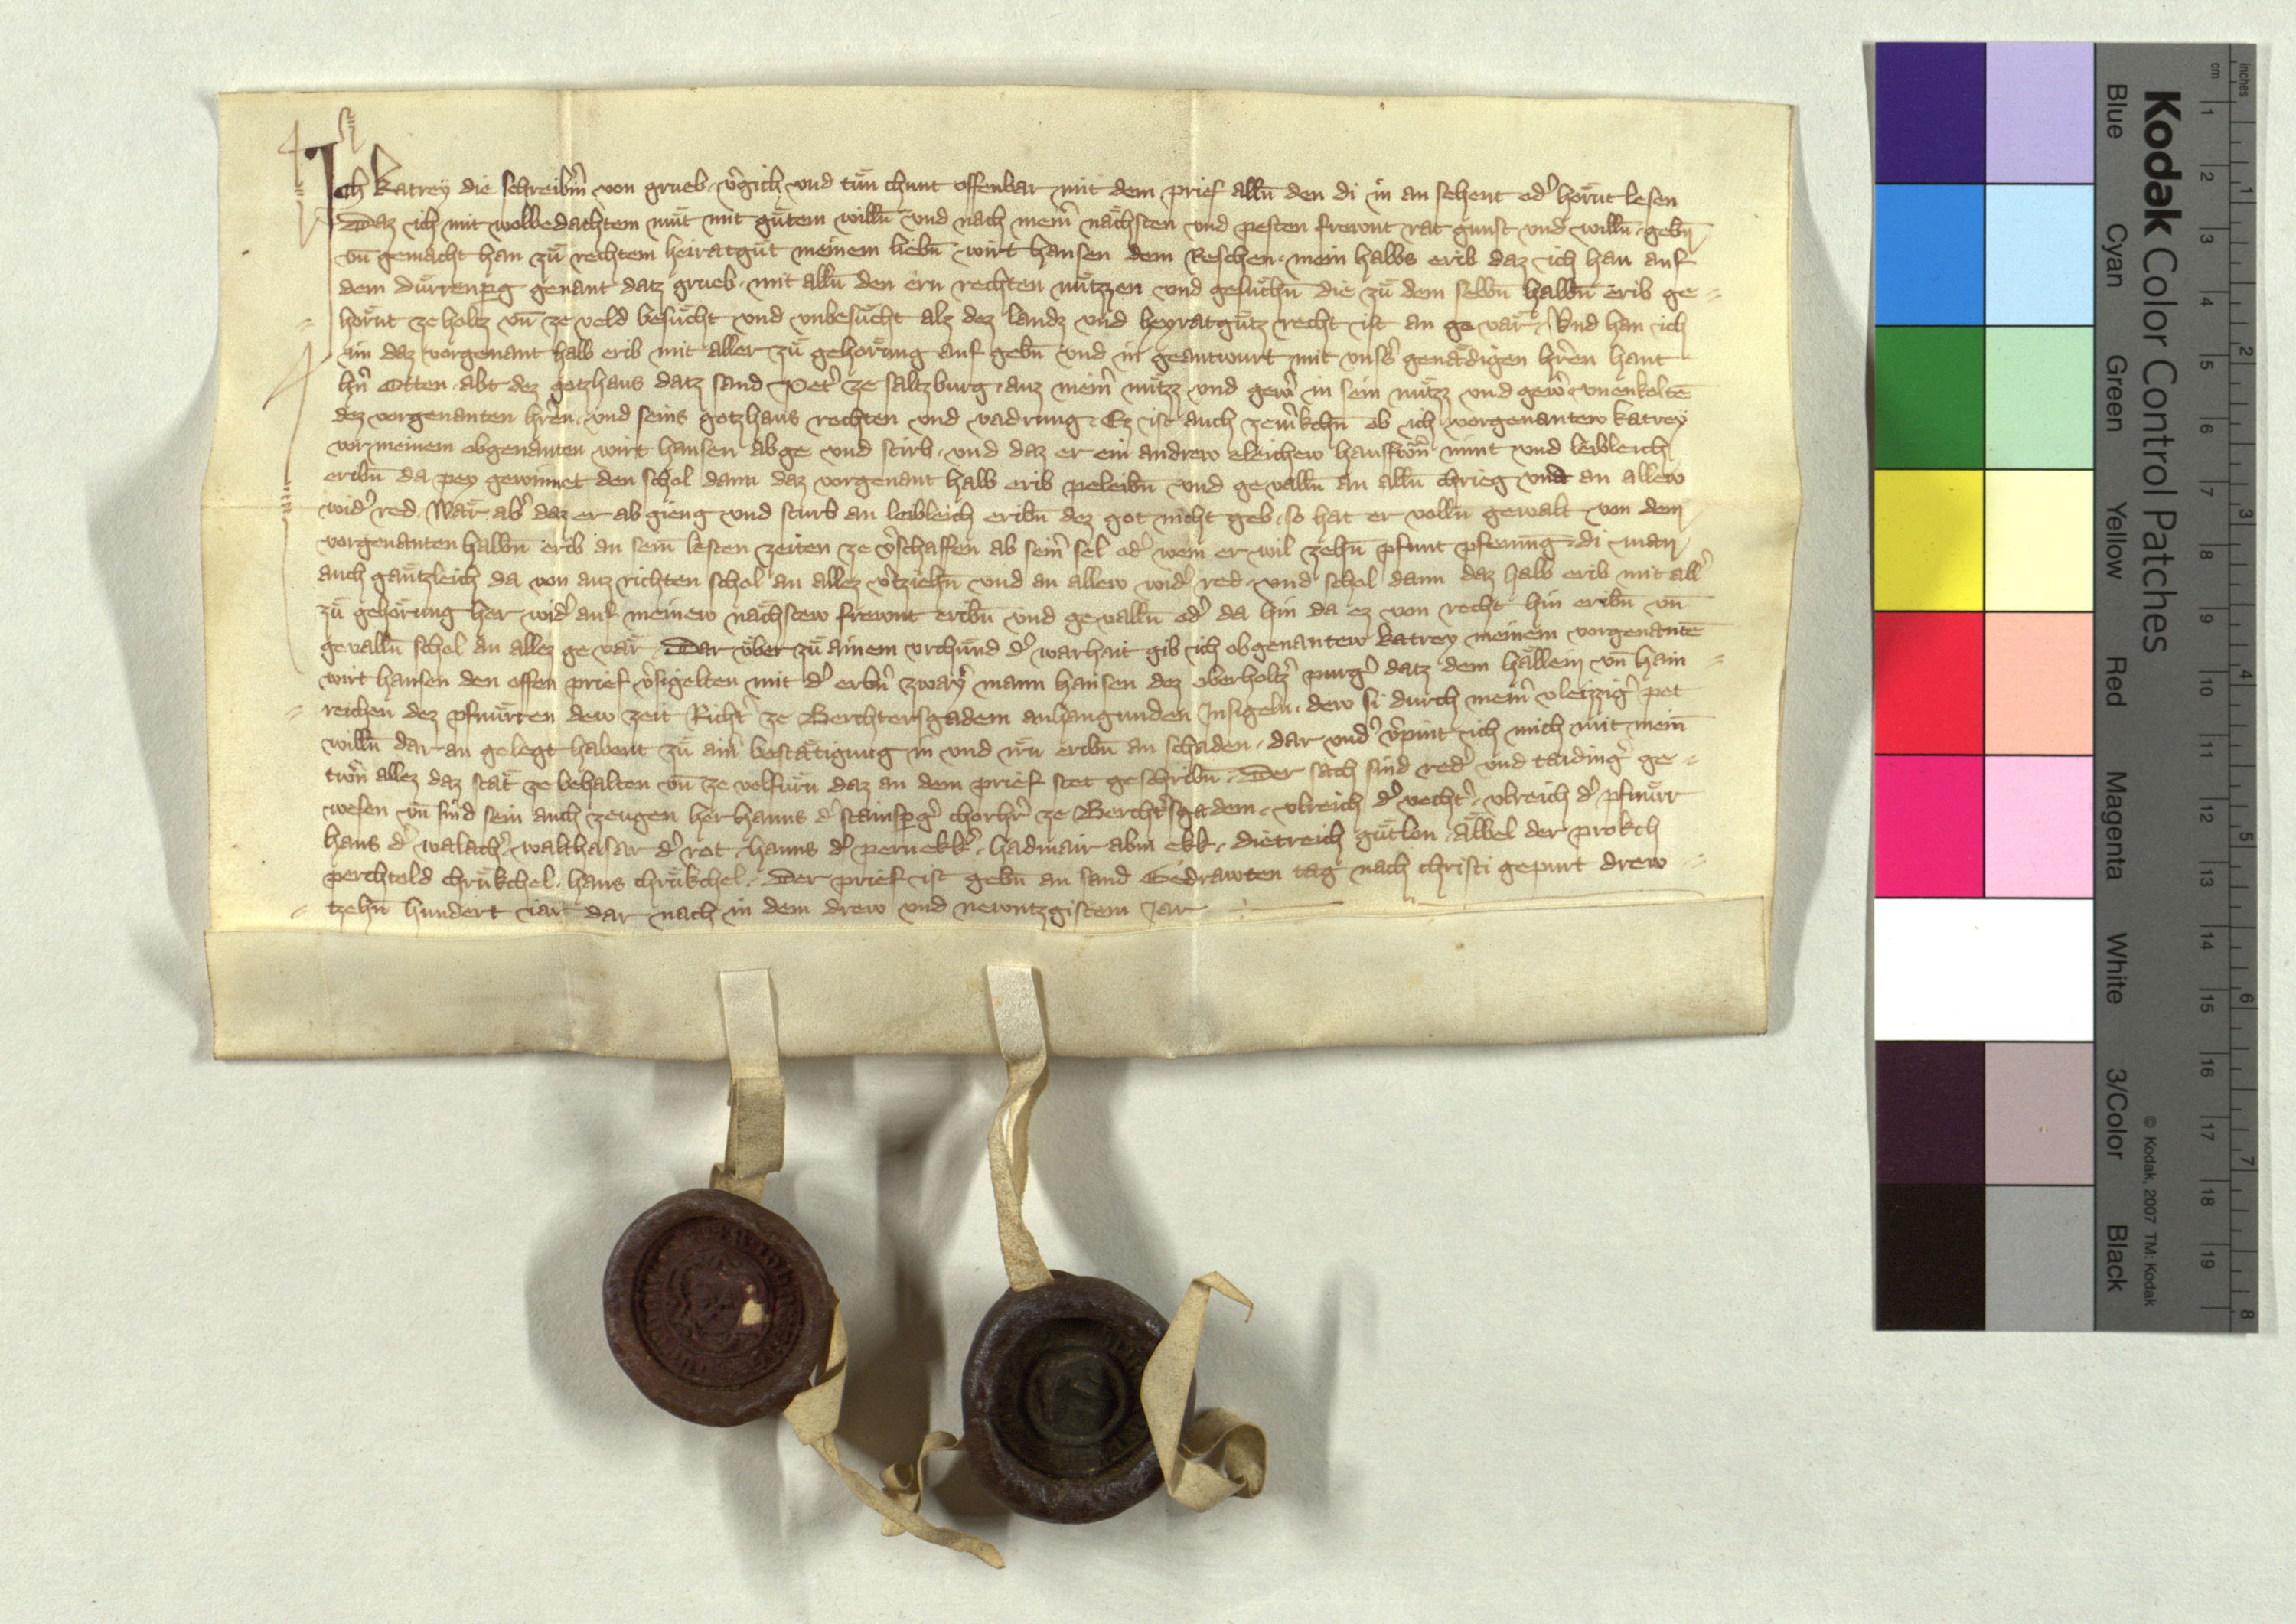 Ich katrey die schreibiñ von grueb v̾gich vnd tůn chunt offenbar mit dem prief alln̄ den di in an sehent od̾ hoͤrnt lesen
Daz ich mit wolbedachtem můt mit gůtem willn̄ vnd nach mein̾ naͤchsten vnd pesten frewnt rat gunst vnd willn̄ gebn̄
vn̄ gemacht han zů rechtem heiratgůt meinem liebn̄ wirt hansen dem Reschen mein halbs erib daz ich han auf
dem důrrenp̱g genant datz grueb mit alln̄ den ern rechten nützzen vnd gesůchn̄ die zů dem selbn̄ halbn̄ erib ge
hoͤrnt ze holtz vn̄ ze veld besůcht vnd vnbesůcht alz dez landz vnd heyratgůtz recht ist an ge vaͤr Vnd han ich
im daz vorgenant halb erib mit aller zů gehoͤrung auf gebn̄ vnd in geantwurt mit vnss̾ genaͤdigen hr̃en hant
hñ Otten abt dez gotzhaus datz sand Pet̾ ze saltzburg auz mein̾ nütz vnd gew̾ in sein nütz vnd gew̾ vnenkoltē
dez vorgenanten hr̃en vnd seins gotzhaus rechten vnd vadrung Ez ist auch zem̾kchn̄ ob ich vorgenantew katrey
vor meinem obgenanten wirt hansen ab ge vnd stirb vnd daz er ein andrew eleichew hausfrow̄ nimt vnd leibleich
eribn̄ da pey gewinnet den schol dann daz vorgenant halb erib peleibn̄ vnd gevalln̄ an alln̄ chrieg vnd an allew
wid̾ red Waͤr ab̾ daz er ab gieng vnd sturb an leibleich eribn̄ dez got nicht geb so hat er volln̄ gewalt von dem
vorgenanten halbn̄ erib an sein̄ lesten zeiten ze v̾schaffen ab sein̾ sel od̾ wem er wil zehn̄ pfunt pfenning di man
auch gaͤntzleich da von auz richten schol an allez v̾tziehn̄ vnd an allew wid̾ red vnd schol dann daz halb erib mit all̾
zů gehoͤrung her wid̾ auf meinew naͤchstew frewnt eribn̄ vnd gevalln̄ od̾ da hin da ez von recht hin eribn̄ vn̄
gevalln̄ schol an allez ge vaͤr Dar über zů ainem vrchünd d̾ warhait gib ich obgenantew katrey meinem vorgenantē
wirt hansen den offen prief v̾sigelten mit d̾ erbn̾ zway̾ mann hansen dez oberholtz̾ purg̾ datz dem haͤllein vn̄ hain
reichen dez pfnürren dew zeit Richt̾ ze Berchtersgadem anhangunden Insigeln dew si durch mein̾ vleizzig̾ pet
willn̄ dar an gelegt habent zů ain̾ bestaͤtigung in vnd irn eribn̄ an schaden dar vnd̾ v̾pint ich mich mit mein̄
trow̄n allez daz staͤt ze behalten vn̄ ze volfürn daz an dem prief stet geschribn̄ Der sach sind red̾ vnd taiding̾ ge
wesen vn̄ sind sein auch zeugen her hanns d̾ stainsp̱g̾ chorhr̾ ze Bercht̾sgadem vlreich d̾ vecht̾ vlreich d̾ pfnürr
hans d̾ walach̾ walthasar d̾ rot hanns d̾ pernekk̾ hadmair abm ekk dietreich gütlon aͤlbel der prokch
perchtold chrükchel hans chrükchel Der prief ist gebn̄ an sand Gedrawten tag nach christi gepurt drew
tzehn̄ hundert iar dar nach in dem drew vnd newntzgistem Jar
Kodak Color Control Patches
Blue Cyan Green Yellow Red Magenta White 3/Color Black
© Kodak, 2007 TM: Kodak
cm 1 2 3 4 5 6 7 8 9 10 11 12 13 14 15 16 17 18 19
inches 1 2 3 4 5 6 7 8